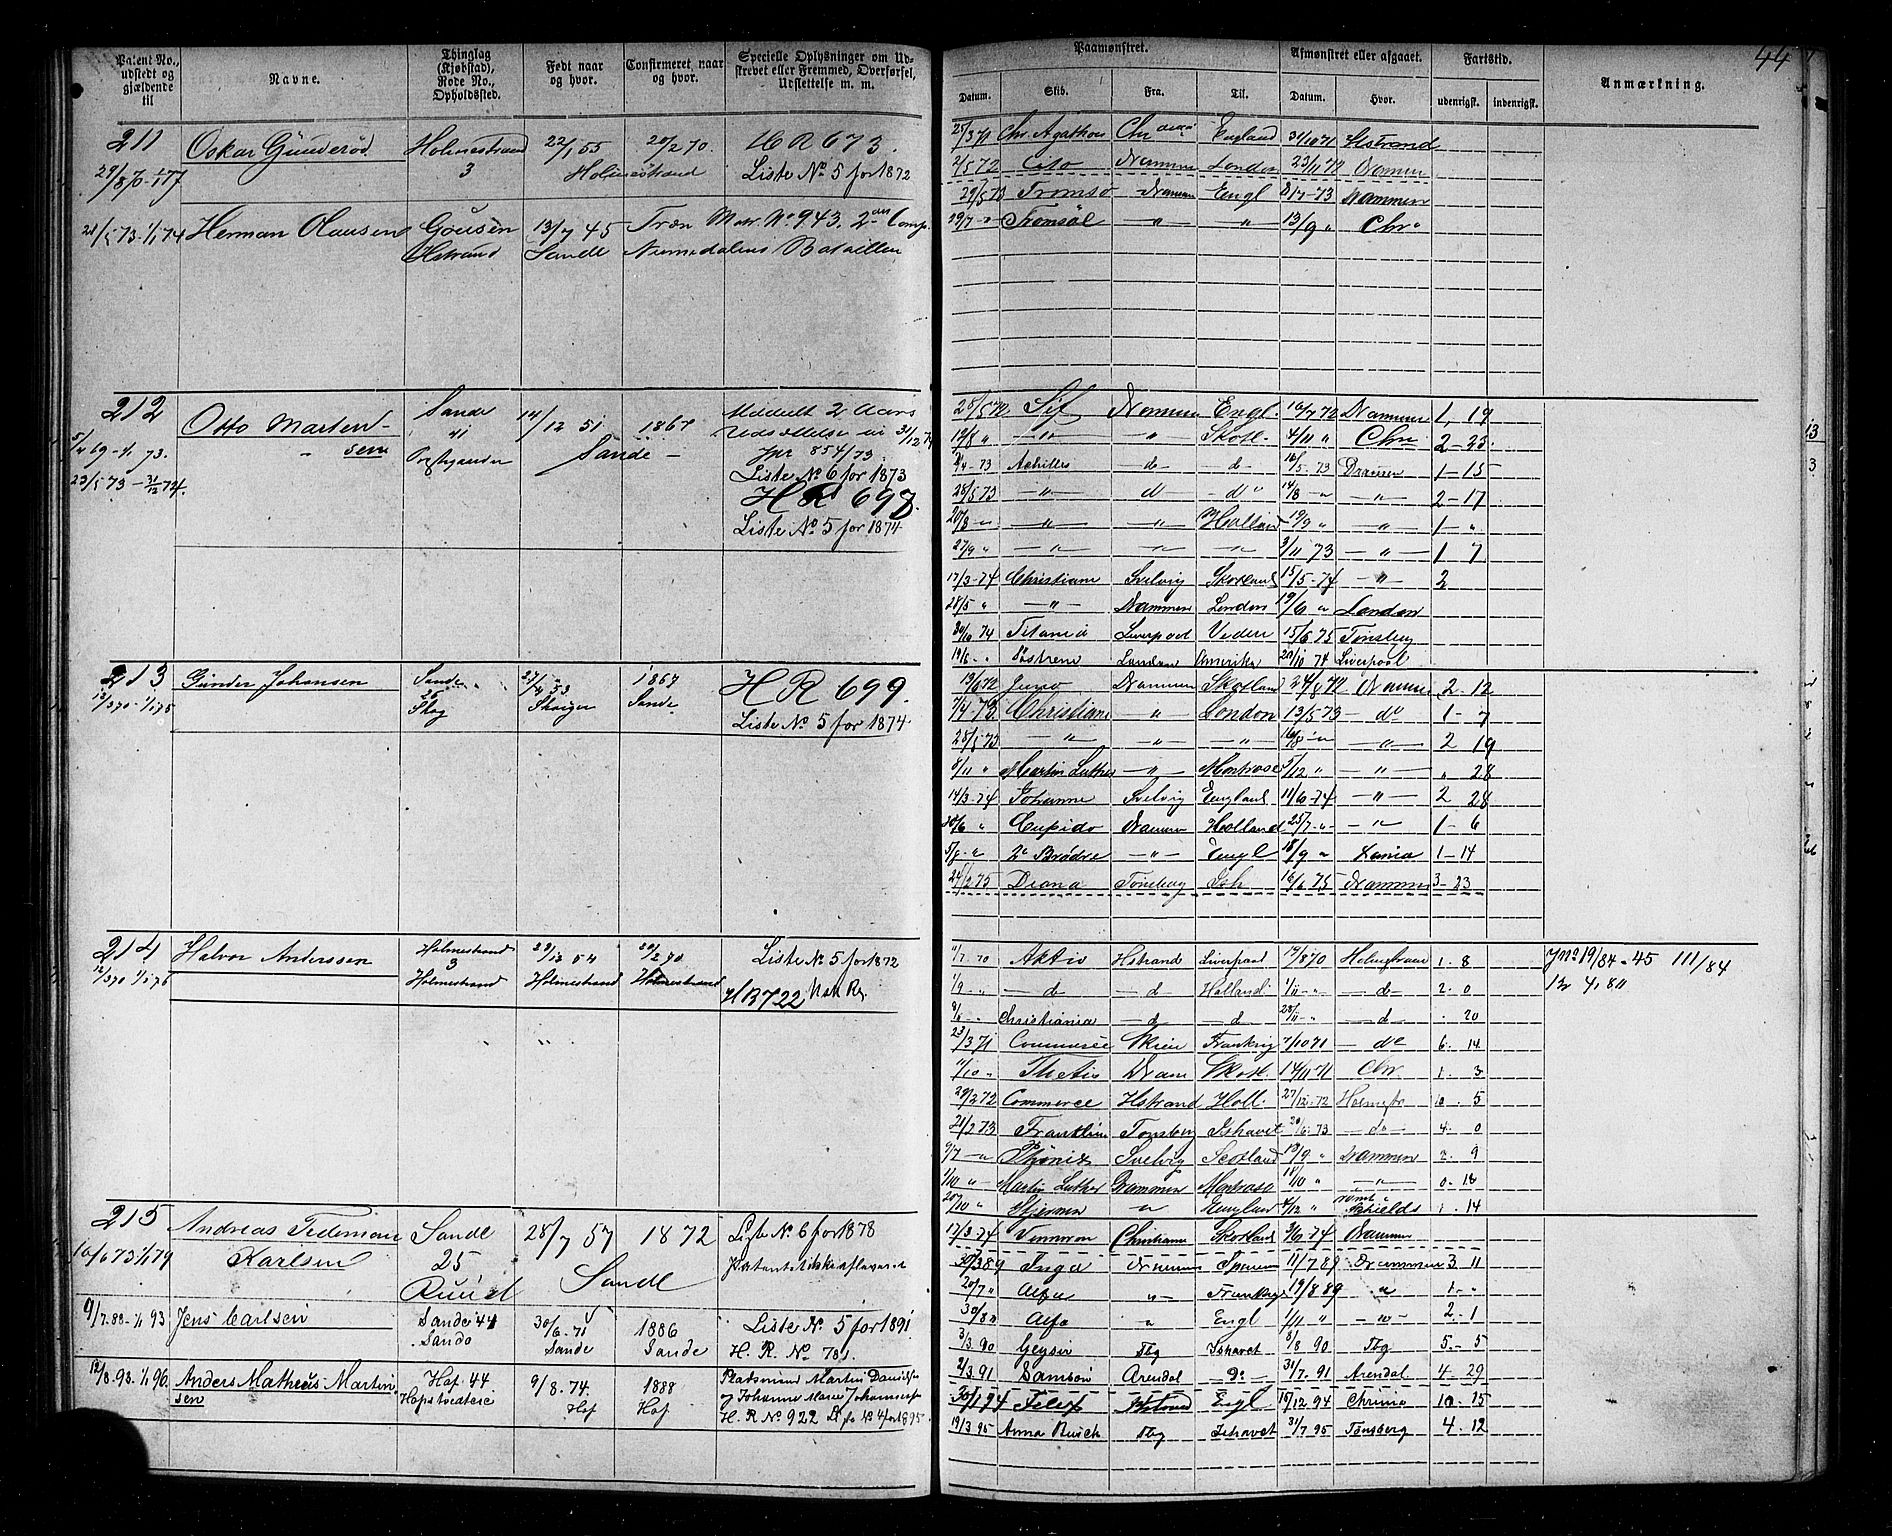 44
Patent No., udstedt og gjældende til | Navne. | Thinglag (Kjøbstad), Rode No., Opholdssted. | Født naar og hvor. | Confirmeret, naar og hvor. | Specielle Oplysninger om Udskrevet eller Fremmed, Overførsel, Udslettelse m. m.
Paamønstret. | Afmønstret eller afgaaet. | Fartstid. | Anmærkning.
Datum. | Skib. | Fra. | Til. | Datum. | Hvor. | udenrigsk. | indenrigsk.
211 | Oskar Gunderød | Holmestrand | 22/1 55 | 20/2 70. | H R 673.
29/8 70 - 1/1 77 | 3 | Holmestrand | Liste No 5 for 1872
Herman Olausen | Gousen | 13/7 45 | Træn Matr. No. 943, 2den Comp.
Hstrand | Sande | Numedalens Bataillon
25/3 71 | Chr. Agathon | England | 31/10 71 | Hstrand
2/5 72 | Cito | Drammen | London | 23/11 72 | Drammen
29/5 73 | Tromsø | Drammen | Engl | 8/7-73 | Drammen
29/7 - " | " | " | 13/9 " | Chra
212 | Otto Martensen | Sande | 14/12 51 | 1867 | Meddelt 2 Aars
5/4 69 - 1/1 73. | 41 | Sande | Udsættelse til 31/12 74
23/5 73 - 31/12 74. | Jnr 854/73.
Liste No 6 for 1873
H R 697.
Liste No 5 for 1874
28/5 72 | Sif | Drammen | Engl. | 16/7 72 | Drammen | 1, 19
19/8 " | " | " | Skotl. | 4/11 " | Chra | 2 - 25.
4-73 | Achilles | d | d | 16/5-73 | Drammen | 1 - 15
28/5 73 | " | d | do | 14/8 - " | " | 2 - 17
20/8 - " | " | " | Holland | 19/9 " | " | 1 - "
27/9 " | " | " | " | 3/11 73 | " | 1 7
17/3-74 | Christiane | Svelvig | Skotland | 15/5-74 | " | 2
28/5 " | " | Drammen | London | 19/6 " | London
30/10 74 | Titania | Liverpool | 15/6 75 | Tønsberg
19/6 - " | Søstrene | London | Amerika | 20/10 74 | Liverpool
213 | Gunder Johansen | Sande | 27/4 53 | 1867 | H R 699.
12/3 70 - 1/1 75 | 26 | Skoger | Sande | Liste No 5 for 1874.
Skog
13/6 72 | Juno | Drammen | Skotland | 24/8 72 | Drammen | 2 - 12
7/4 73 | Christiane | " | London | 13/5 73 | do | 1 - 7
28/5 73 | " | " | " | 16/8 - " | " | 2 19
8/11 " | Martin Luther | " | Montrose | 5/12 " | " | " 28
14/3-74 | Johanne | Svelvig | England | 11/6-74 | " | 2 28
30/6 " | Cupido | Drammen | Holland | 25/7 - " | " | 1 - 6
5/8 - " | 2 Brødre | " | Engl | 18/9 " | 1 - 14
24/2 75 | Diana | Tønsberg | Ish | 16/6 75 | Drammen | 3 - 23
214 | Halvor Anderssen | Holmestrand | 29/12 54 | 20/2 70 | Liste No 5 for 1872
12/3 70 1/1 76 | 3 | Holmestrand | Holmestrand
Holmestrand | H R 722
11/7 70 | Aktiv | Hstrand | Liverpool | 19/8 70 | Holmestrand | 1. 8 | 19/84 - 45 111/84
1/9 - " | d | d | Holland | 1/11 - " | d | 2. 0
Christiania | d | d | 28/11 - " | d | . 20
23/3 71 | Commerce | Skien | Frankrig | 7/10 71 | do | 6. 14
11/10 " | Thetis | Dram | Skotl. | 14/11-71 | Chr. | 1. 3
29/2 72 | Commerce | Hstrand | Holl. | 27/12-72 | Holmestr | 10. 5
21/2 73 | Franklin | Tønsberg | Ishavet | 20/6-73 | do | 4. 0
9/7 - " | Phønix | Svelvig | Scotland | 19/9 " | Drammen | 2. 9
1/10 " | Martin Luther | Drammen | Montrose | 18/10 " | " | 0. 18
20/10 " | Stjernen | " | England | 4/12 " | rømt i Schields | 1. 14
215 | Andreas Tideman Karlsen | Sande | 28/7 57 | 1872 | Liste No. 6 for 1878
10/6 73 1/1 79 | 25 | Sande | Patentet ikke afleveret
17/3-74 | Christiania | Skotland | 3/6 74 | Drammen
9/7-88 - 1/1 93. | Jens Carlsen | Sande 44 | 30/6-71 | 1886 | Liste No. 5 for 1891
Sande | Sande | Sande | H. R. No 781.
30/3 89 | Inga | Drammen | Spanien | 11/7 89 | Drammen | 3 11
20/7 " | Alfa | " | Frankrig | 19/8 89 | " | 1. "
30/8 " | Alfa | " | Engl | " | " | 2 - 1
3/3. 90 | Geysir | Tbg | Ishavet | 8/8 90 | Tbg | 5. - 5
2/3. 91 | Samson | Arendal | Do | 31/7. 91 | Arendal | 4 - 29
12/8 93. 1/1 96. | Anders Matheus Martinsen | Hof. 44 | 9/8. 74. | 1888 | Pladsmand Martin Danielsen
Hof | Hof | og Johanne Marie Johannesd
H. R No 922 Liste No 4 for 1895
30/1 94 | Felix | Hstrand | Engl | 15/12 94 | Chrania | 10. 15
19/3 95 | Anna Busch | Tbg | Ishavet | 31/7. 95 | Tønsberg | 4. 12